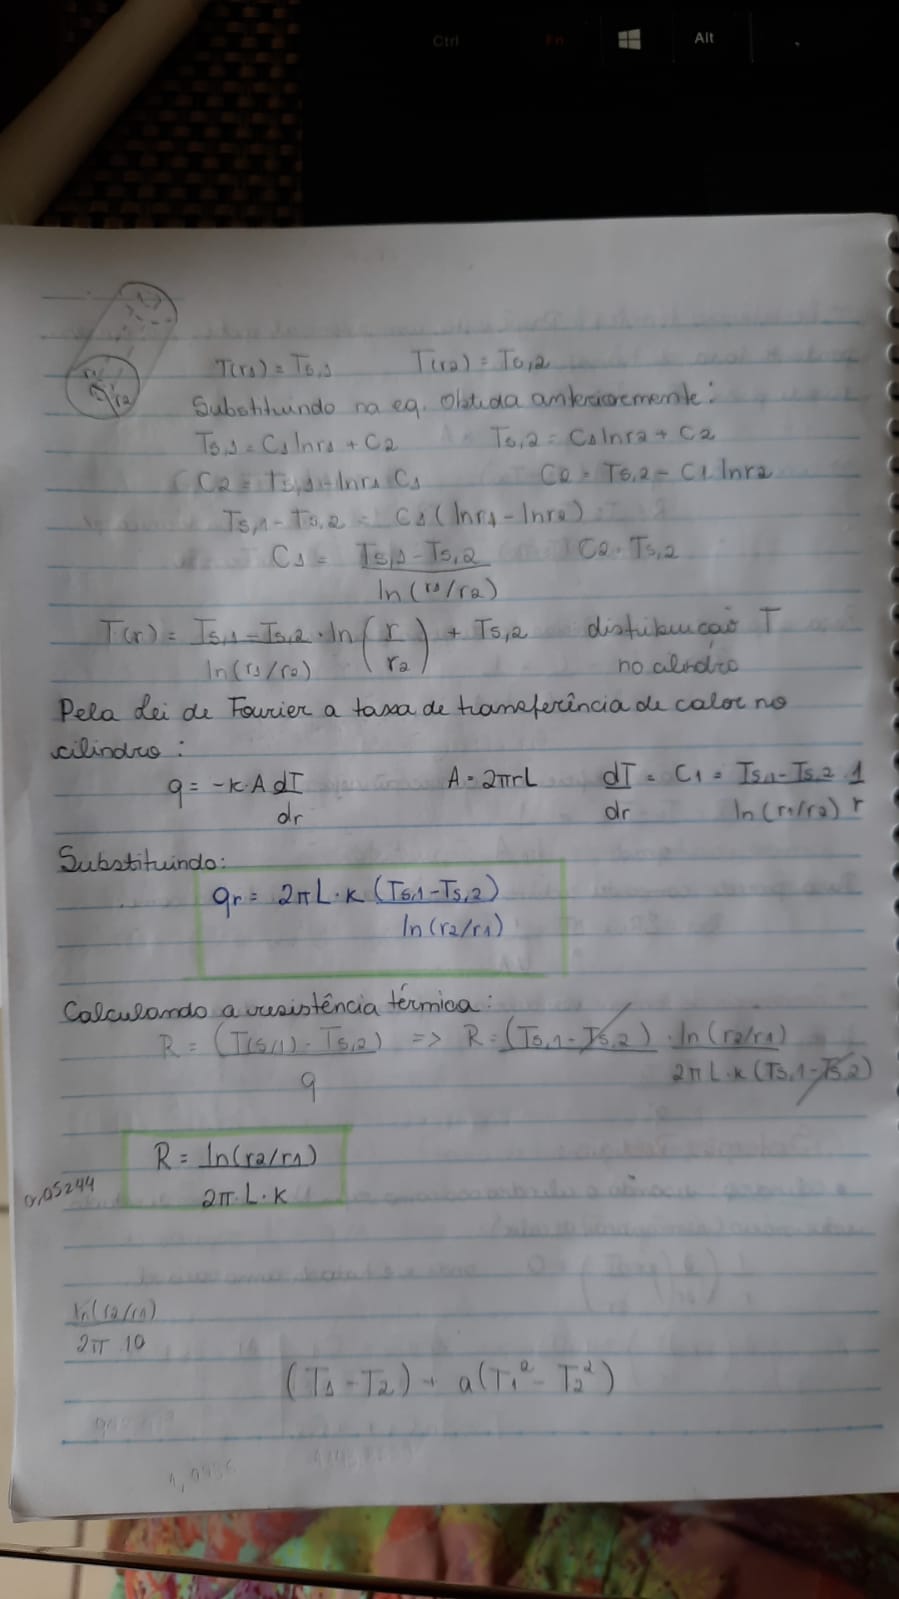 Ctrl Fn Alt
r1 r2
T(r1) = Ts,1 T(r2) = Ts,2
Substituindo na eq. obtida anteriormente:
Ts,1 = C1 lnr1 + C2 Ts,2 = C1 lnr2 + C2
C2 = Ts,1 - lnr1 C1 C2 = Ts,2 - C1. lnr2
Ts,1 - Ts,2 = C1 (lnr1 - lnr2)
C1 = Ts,1 - Ts,2 C2 = Ts,2
ln(r1/r2)
T(r) = Ts,1 - Ts,2 . ln (r) + Ts,2 distribuição T
ln(r1/r2) r2 no cilindro
Pela Lei de Fourier a taxa de transferência de calor no
cilindro:
q = -k.A dT A = 2πrL dT = C1 = Ts,1 - Ts,2 . 1
dr dr ln(r1/r2) r
Substituindo:
qr = 2πL.k (Ts,1 - Ts,2)
ln(r2/r1)
Calculando a resistência térmica:
R = (T(s,1) - Ts,2) => R = (Ts,1 - Ts,2) . ln(r2/r1)
q 2πL.k (Ts,1 - Ts,2)
R = ln(r2/r1)
0,05244 2π.L.k
ln(r2/r1)
2π 10
(T1 - T2) + a(T1² - T2²)